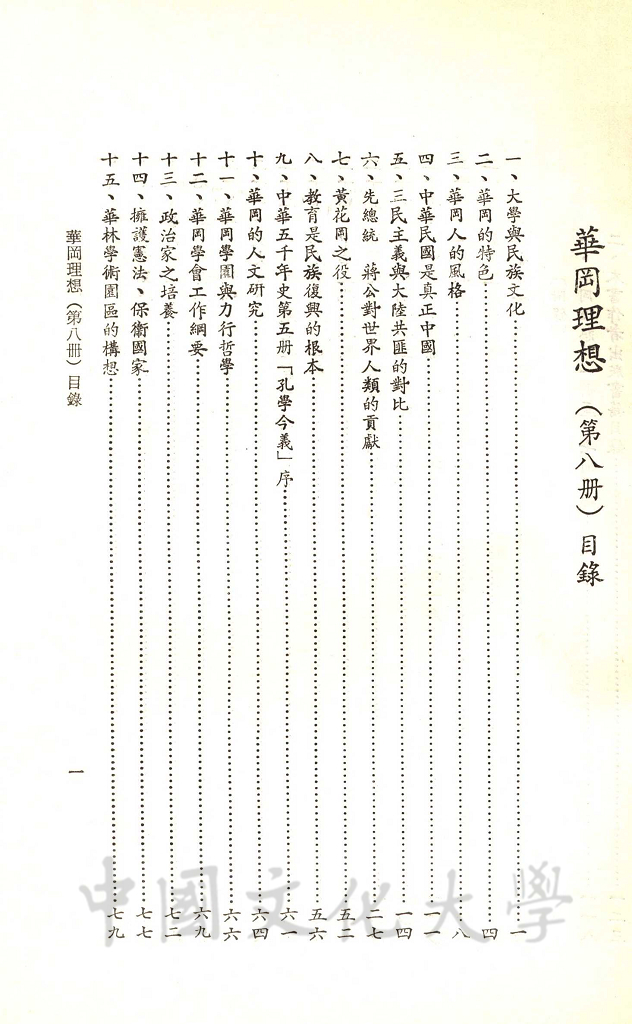 華岡理想(第八冊)目錄
一、大學與民族文化……一
二、華岡的特色……四
三、華岡人的風格……八
四、中華民國是真正中國……一一
五、三民主義與大陸共匪的對比……一四
六、先總統 蔣公對世界人類的貢獻……二七
七、黃花岡之役……五二
八、教育是民族復興的根本……五六
九、中華五千年史第五册「孔學今義」序……六一
十、華岡的人文研究……六四
十一、華岡學園與力行哲學……六六
十二、華岡學會工作綱要……六九
十三、政治家之培養……七二
十四、擁護憲法、保衛國家……七七
十五、華林學術園區的構想……七九
華岡理想(第八冊)目錄
一
中國文化大學